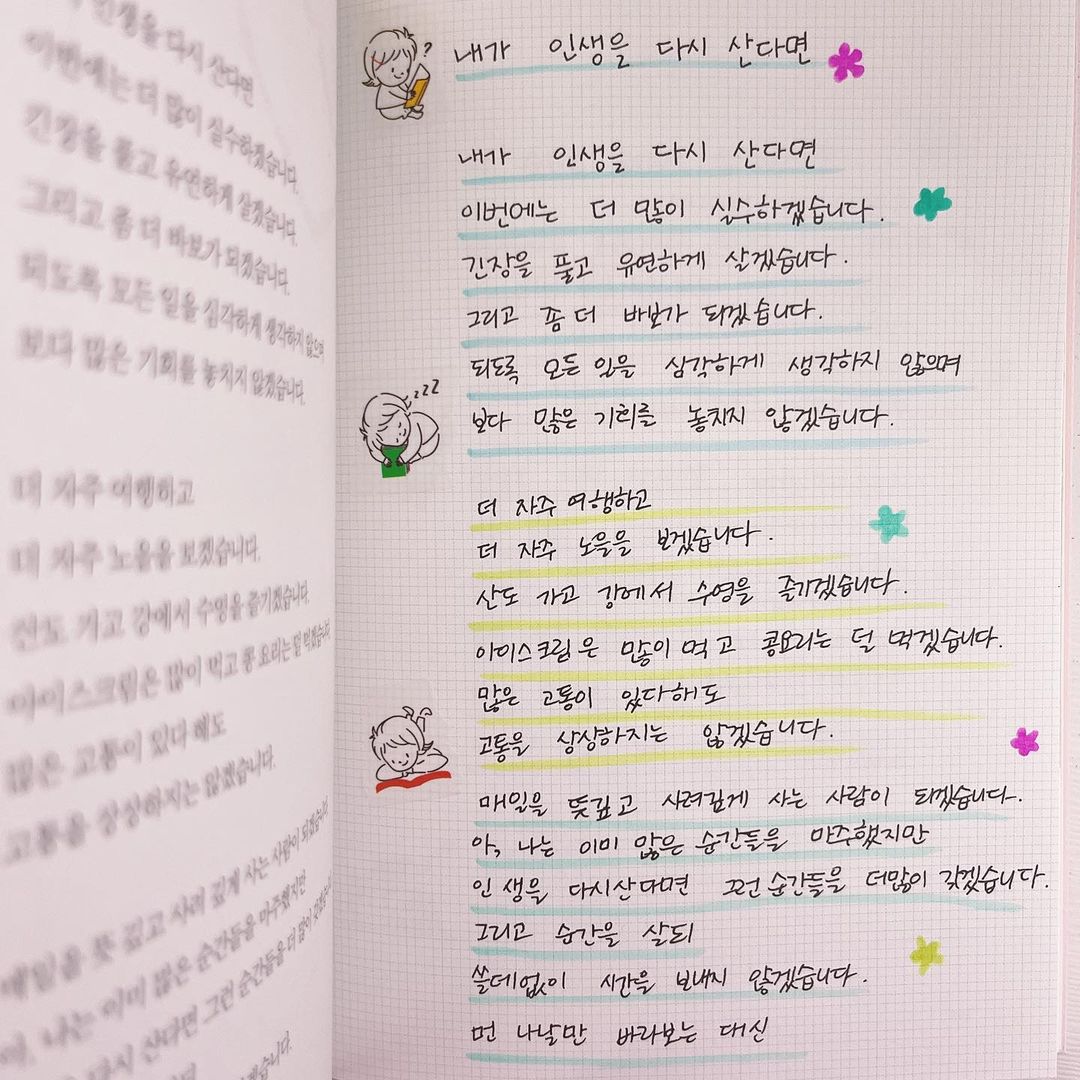 인생을 다시 산다면
이번에는 더 많이 실수하겠습니다.
긴장을 풀고 유연하게 살겠습니다.
그리고 좀 더 바보가 되겠습니다.
되도록 모든 일을 심각하게 생각하지 않으며
보다 많은 기회를 놓치지 않겠습니다.
더 자주 여행하고
더 자주 노을을 보겠습니다.
산도 가고 강에서 수영을 즐기겠습니다.
아이스크림은 많이 먹고 콩 요리는 덜 먹겠습니다
많은 고통이 있다 해도
고통을 상상하지는 않겠습니다.
매일을 뜻 깊고 사려 깊게 사는 사람이 되겠습니다.
아, 나는 이미 많은 순간들을 마주했지만
다시 산다면 그런 순간들을 더 많이
?
내가 인생을 다시 산다면
내가 인생을 다시 산다면
이번에는 더 많이 실수하겠습니다.
긴장을 풀고 유연하게 살겠습니다.
그리고 좀 더 바보가 되겠습니다.
되도록 모든 일을 심각하게 생각하지 않으며
zzz
보다 많은 기회를 놓치지 않겠습니다.
더 자주 여행하고
더 자주 노을을 보겠습니다.
산도 가고 강에서 수영을 즐기겠습니다.
아이스크림은 많이 먹고 콩요리는 덜 먹겠습니다.
많은 고통이 있다해도
고통을 상상하지는 않겠습니다.
매일을 뜻깊고 사려깊게 사는 사람이 되겠습니다.
아, 나는 이미 많은 순간들을 마주했지만
인생을 다시산다면 그런 순간들을 더많이 갖겠습니다.
그리고 순간을 살되
쓸데없이 시간을 보내지 않겠습니다.
먼 나날만 바라보는 대신